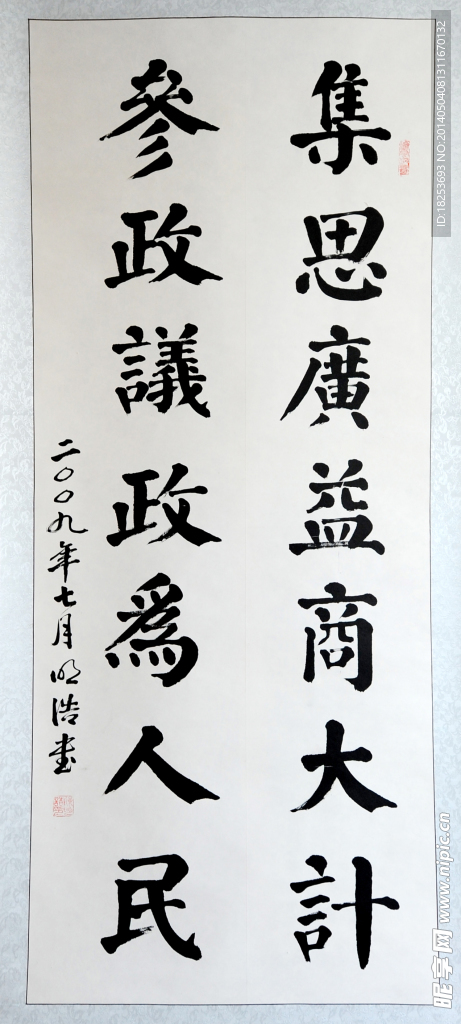 集思廣益商大計
參政議政為人民
二〇〇九年七月明浩書
ID:18253693 NO:20140504081311670132
昵享网 www.nipic.cn